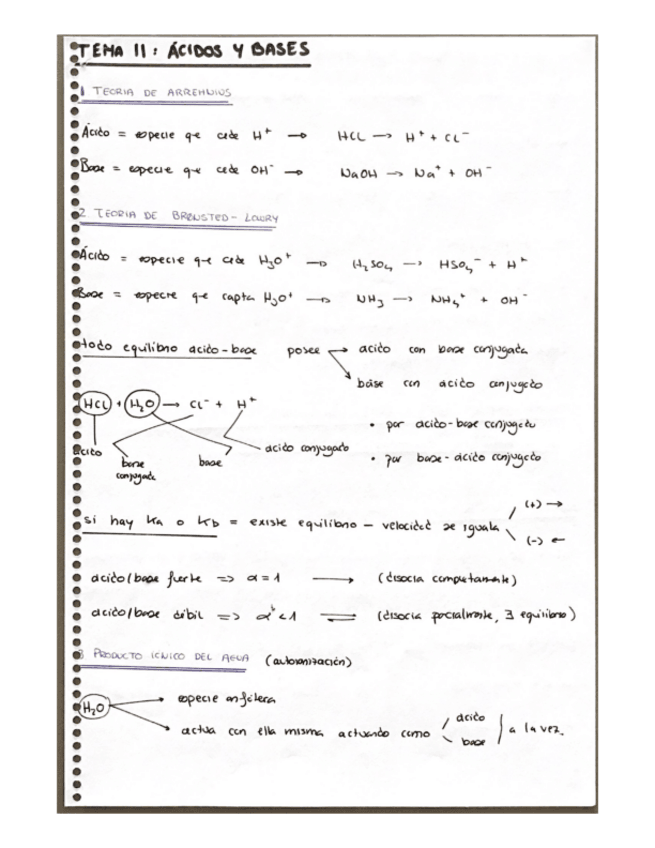 TEMA 11: ÁCIDOS Y BASES
1 TEORIA DE ARRHENIUS
Ácido = especie que cede H⁺ → HCL → H⁺ + CL⁻
Base = especie que cede OH⁻ → NaOH → Na⁺ + OH⁻
2. TEORIA DE BRØNSTED-LOWRY
Ácido = especie que cede H₃O⁺ → H₂SO₄ → HSO₄⁻ + H⁺
Base = especie que capta H₃O⁺ → NH₃ → NH₄⁺ + OH⁻
todo equilibrio acido-base posee → acido con base conjugada
→ base con acido conjugado
HCL + H₂O → CL⁻ + H⁺
• par acido-base conjugado
acido base conjugada base acido conjugado
• par base-acido conjugado
si hay Ka o Kb = existe equilibrio - velocidad se iguala / (+) →
\ (-) ←
acido/base fuerte => α=1 → (disocia completamente)
acido/base débil => α<1 ⇌ (disocia parcialmente, ∃ equilibrio)
3 PRODUCTO IONICO DEL AGUA (autoionización)
H₂O → especie anfótera
→ actua con ella misma actuando como / acido \ base a la vez.